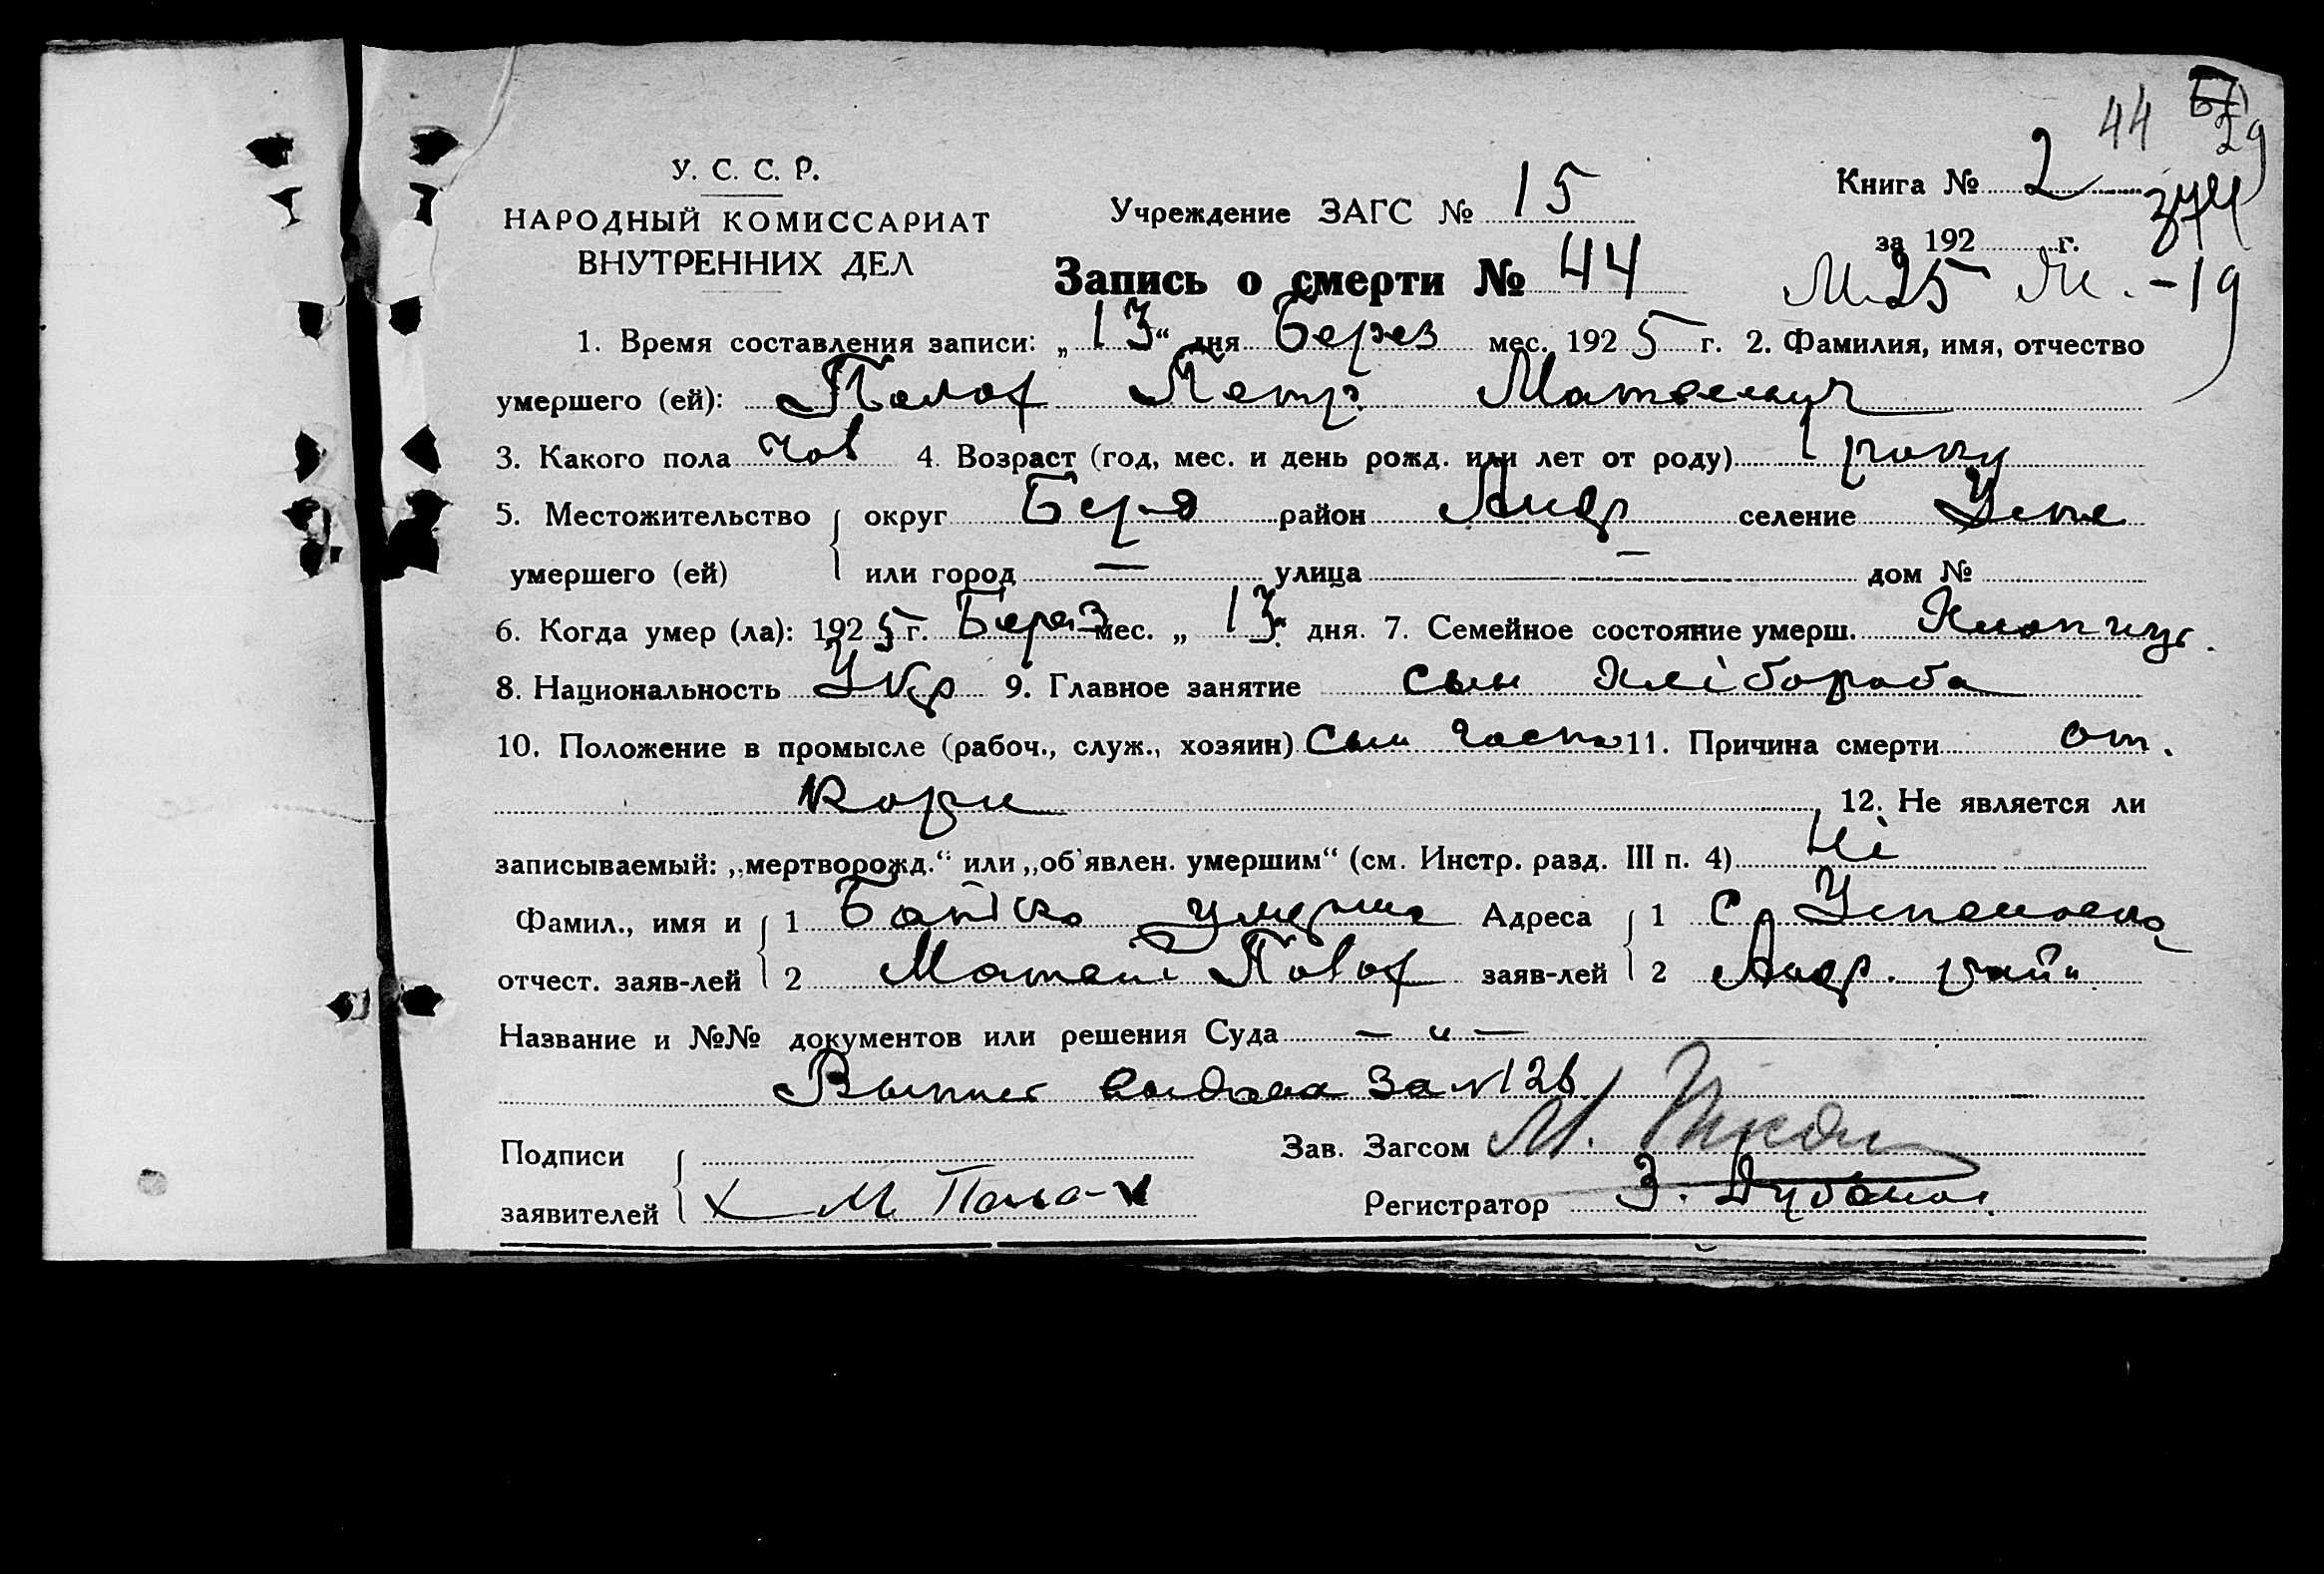 44
29
У. С. С. Р.
НАРОДНЫЙ КОМИССАРИАТ
ВНУТРЕННИХ ДЕЛ
Учреждение ЗАГС № 15
Книга № 2
за 192 г.
Запись о смерти № 44
25 М. - 19
1. Время составления записи: „13“ дня Берез мес. 1925 г. 2. Фамилия, имя, отчество
умершего (ей): Петр Матвеевич
3. Какого пола чов 4. Возраст (год, мес. и день рожд. или лет от роду) 1 року
5. Местожительство округ район Андр селение Успе
умершего (ей) или город — улица — дом №
6. Когда умер (ла): 1925 г. Берез мес. „13“ дня. 7. Семейное состояние умерш.
8. Национальность Укр 9. Главное занятие сын хлібороба
10. Положение в промысле (рабоч., служ., хозяин) Сын 11. Причина смерти от.
кори 12. Не является ли
записываемый: „мертворожд.“ или „об'явлен. умершим“ (см. Инстр. разд. III п. 4) Ні
Фамил., имя и 1 Батько умерше Адреса 1 С.
отчест. заяв-лей 2 заяв-лей 2 Андр. райн
Название и №№ документов или решения Суда — „ —
За № 126
Подписи Зав. Загсом М.
заявителей Х М Регистратор З.